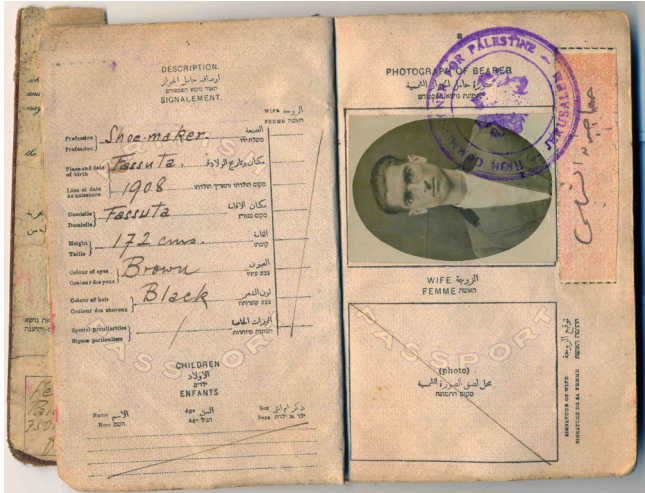 DESCRIPTION.
اوصاف حامل الجواز
תאור נושא הפספורט
SIGNALEMENT.
WIFE الزوجة
FEMME האשה
Profession
Profession
Shoe-maker.
الصنعة
משלח ידו
Place and date
of birth
Fassuta.
مكان وتاريخ الولادة
Lieu et date
de naissance
1908
מקום הולדתו ותאריך הולדתו
Domicile
Domicile
Fassuta
مكان الاقامة
מקום מגוריו
Height
Taille
172 cms.
القامة
קומתו
Colour of eyes
Couleur des yeux
Brown
العيون
צבע עיניו
Colour of hair
Couleur des cheveux
Black
لون الشعر
צבע שערותיו
Special peculiarities
Signes particuliers
المميزات الخاصة
סימנים מיוחדים
PASSPORT
CHILDREN
الاولاد
ילדים
ENFANTS
Name الاسم
Nom השם
Age السن
Age הגיל
Sex ذكر ام انثى
Sexe ילד או ילדה
8
PHOTOGRAPH OF BEARER
صورة حامل الجواز الشمسية
תמונת נושא הפספורט
HIGH COMMISSIONER FOR PALESTINE - JERUSALEM
WIFE الزوجة
FEMME האשה
PASSPORT
(photo)
محل لصق الصورة الشمسية
מקום התמונה
توقيع الزوجة
חתימת האשה
SIGNATURE OF WIFE
SIGNATURE DE SA FEMME